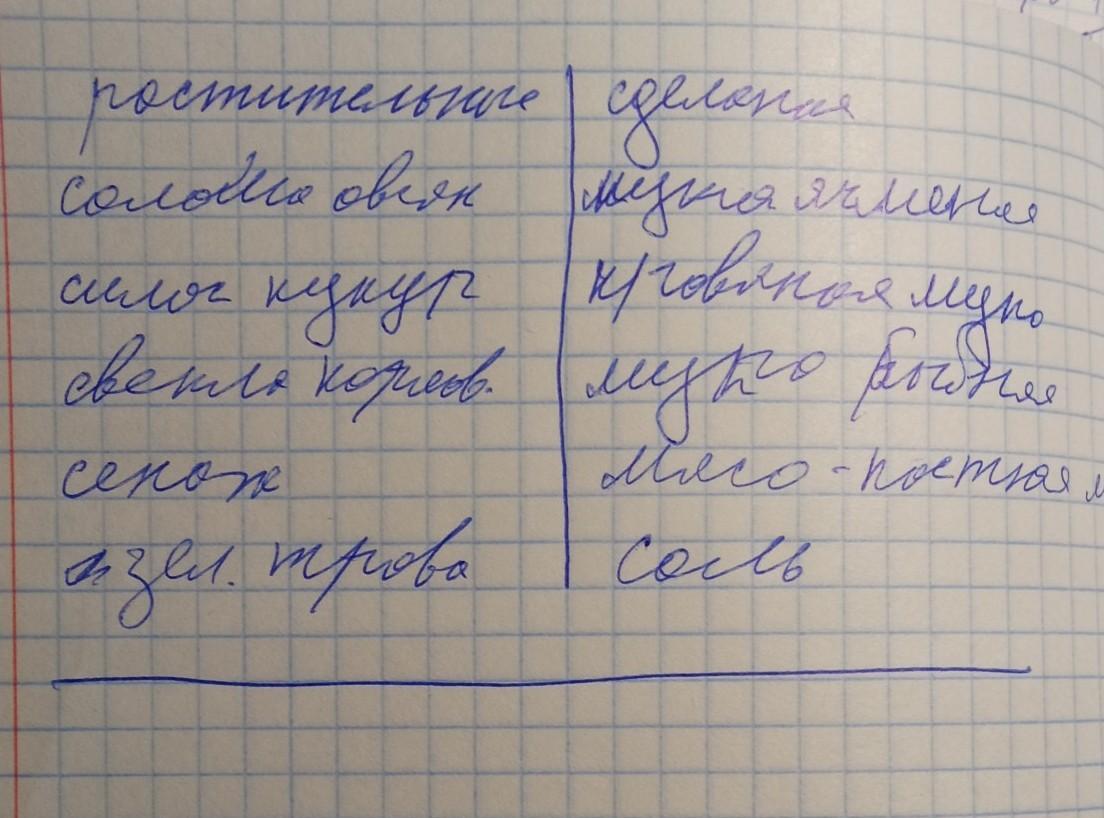 растительные сделаная
солома овсян мукпа ячменая
силос кукур кровяная мука
свекла кормов. мука рыбная
сенаж мясо-костная м
зел. трава соль